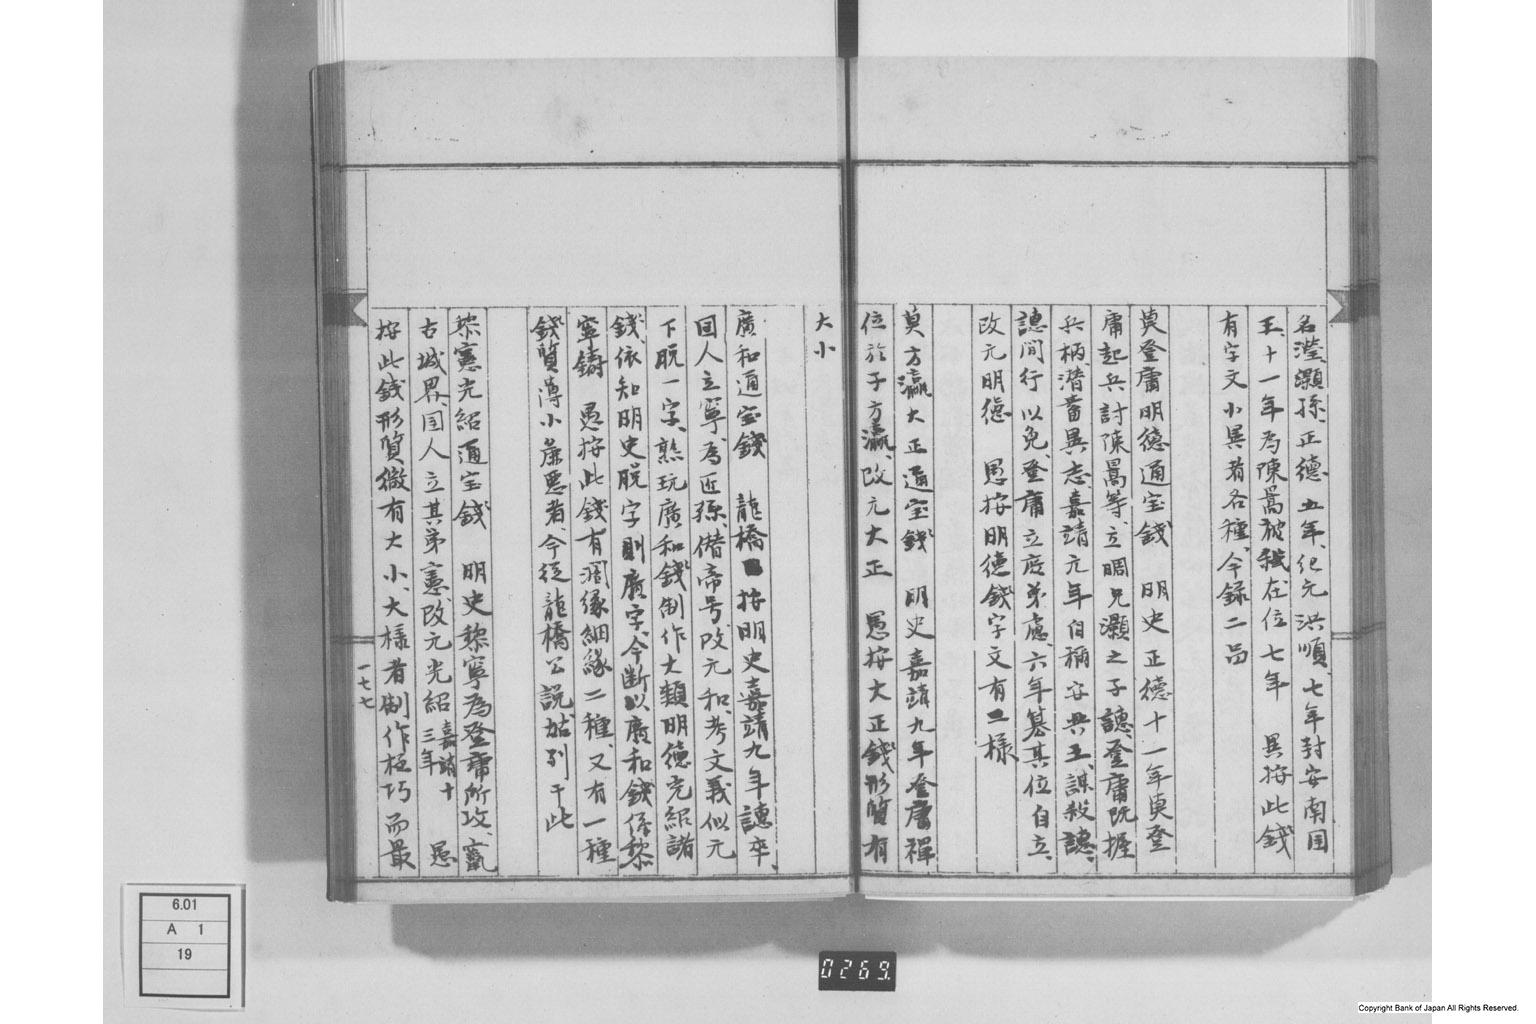 名瀅灝孫、正德五年、紀元洪順、七年封安南国
王、十一年為陳暠被弒在位七年　異按此錢
有字文小異者各種、今錄二品
莫登庸明德通宝錢　明史正德十一年莫登
庸起兵討陳暠等、立晭兄灝之子譓、登庸既握
兵柄潛蓄異志嘉靖元年自稱安興王、謀殺譓、
譓間行以免、登庸立庶弟慮、六年篡其位自立、
改元明德　愚按明德錢字文有二様
莫方瀛大正通宝錢　明史嘉靖九年登庸禪
位於子方瀛、改元大正　愚按大正錢形質有
大小
廣和通宝錢　龍橋按明史嘉靖九年譓卒、
国人立寧、為匠孫、僭帝号改元和、考文義似元
下脱一字、熟玩廣和錢制作大類明德光紹諸
錢、依知明史脱字則廣字、今断以廣和錢係黎
寧鑄　愚按此錢有濶緣細緣二種、又有一種
錢質薄小麁悪者、今従龍橋公説、姑列于此
黎憲光紹通宝錢　明史黎寧為登庸所攻、竄
古城界、国人立其弟憲、改元光紹嘉靖十三年　愚
按此錢形質微有大小、大様者制作極巧而最
一七七
6.01
A 1
19
0269.
Copyright Bank of Japan All Rights Reserved.